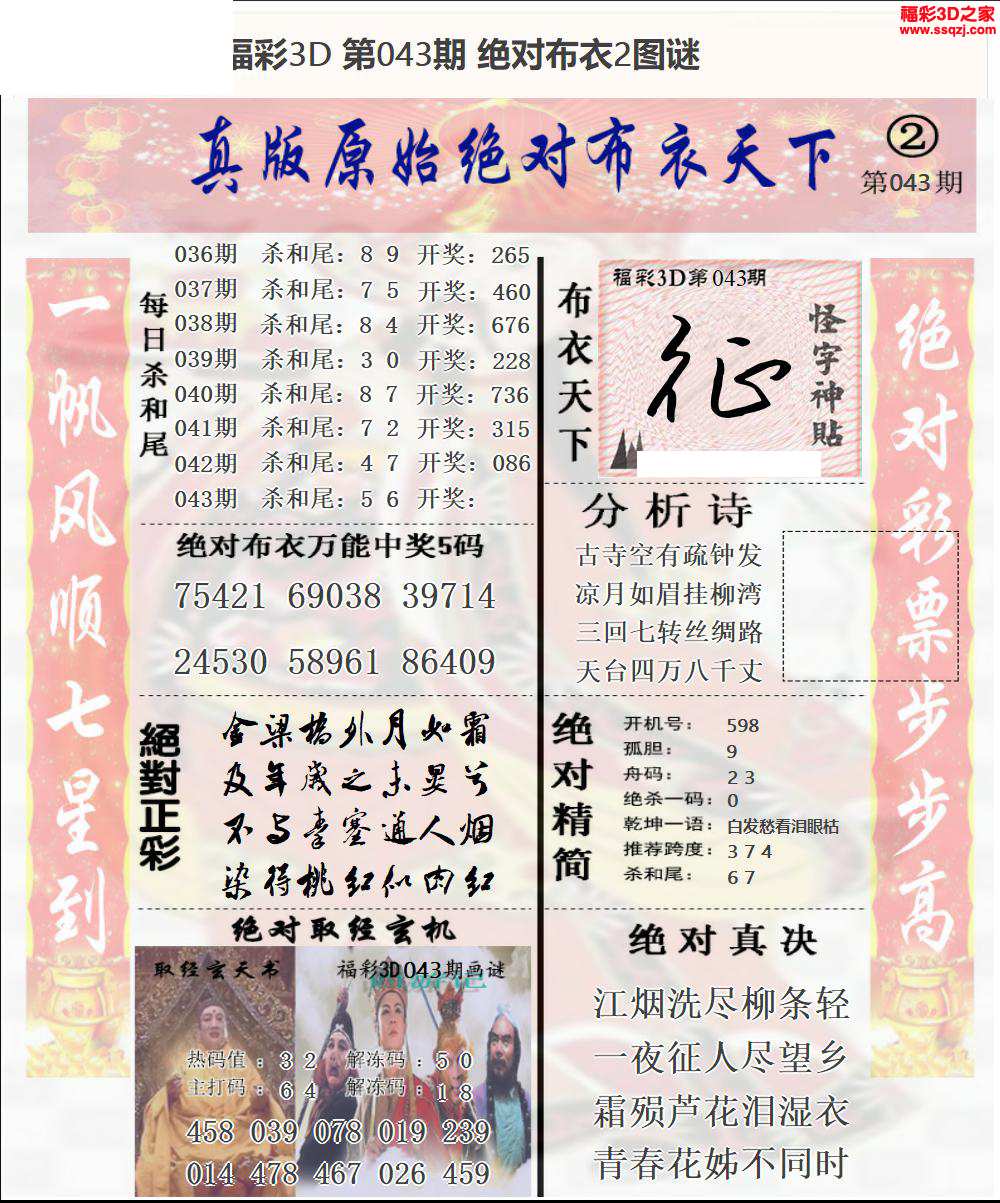 福彩3D之家
www.ssqzj.com
福彩3D 第043期 绝对布衣2图谜
真版原始绝对布衣天下
②
第043期
一帆风顺七星到
每日杀和尾
036期 杀和尾：8 9 开奖：265
037期 杀和尾：7 5 开奖：460
038期 杀和尾：8 4 开奖：676
039期 杀和尾：3 0 开奖：228
040期 杀和尾：8 7 开奖：736
041期 杀和尾：7 2 开奖：315
042期 杀和尾：4 7 开奖：086
043期 杀和尾：5 6 开奖：
绝对布衣万能中奖5码
75421 69038 39714
24530 58961 86409
絕對正彩
金梁桥外月如霜
及年岁之未晏兮
不与秦塞通人烟
染得桃红似肉红
绝对取经玄机
取经玄天书
福彩3D043期画谜
热码值：3 2 解冻码：5 0
主打码：6 4 解冻码：1 8
458 039 078 019 239
014 478 467 026 459
布衣天下
福彩3D第043期
征
怪字神貼
分析诗
古寺空有疏钟发
凉月如眉挂柳湾
三回七转丝绸路
天台四万八千丈
绝对精简
开机号：598
孤胆：9
舟码：2 3
绝杀一码：0
乾坤一语：白发愁看泪眼枯
推荐跨度：3 7 4
杀和尾：6 7
绝对真决
江烟洗尽柳条轻
一夜征人尽望乡
霜殒芦花泪湿衣
青春花姊不同时
绝对彩票步步高